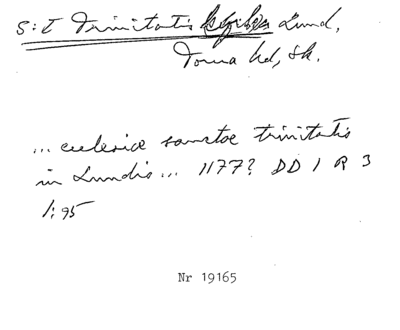 S:t Trinitatis Lund,
Torna hd, Sk.
... ecclesiae sanctae trinitatis
in Lundis... 1177? DD 1 R 3
1:95
Nr 19165